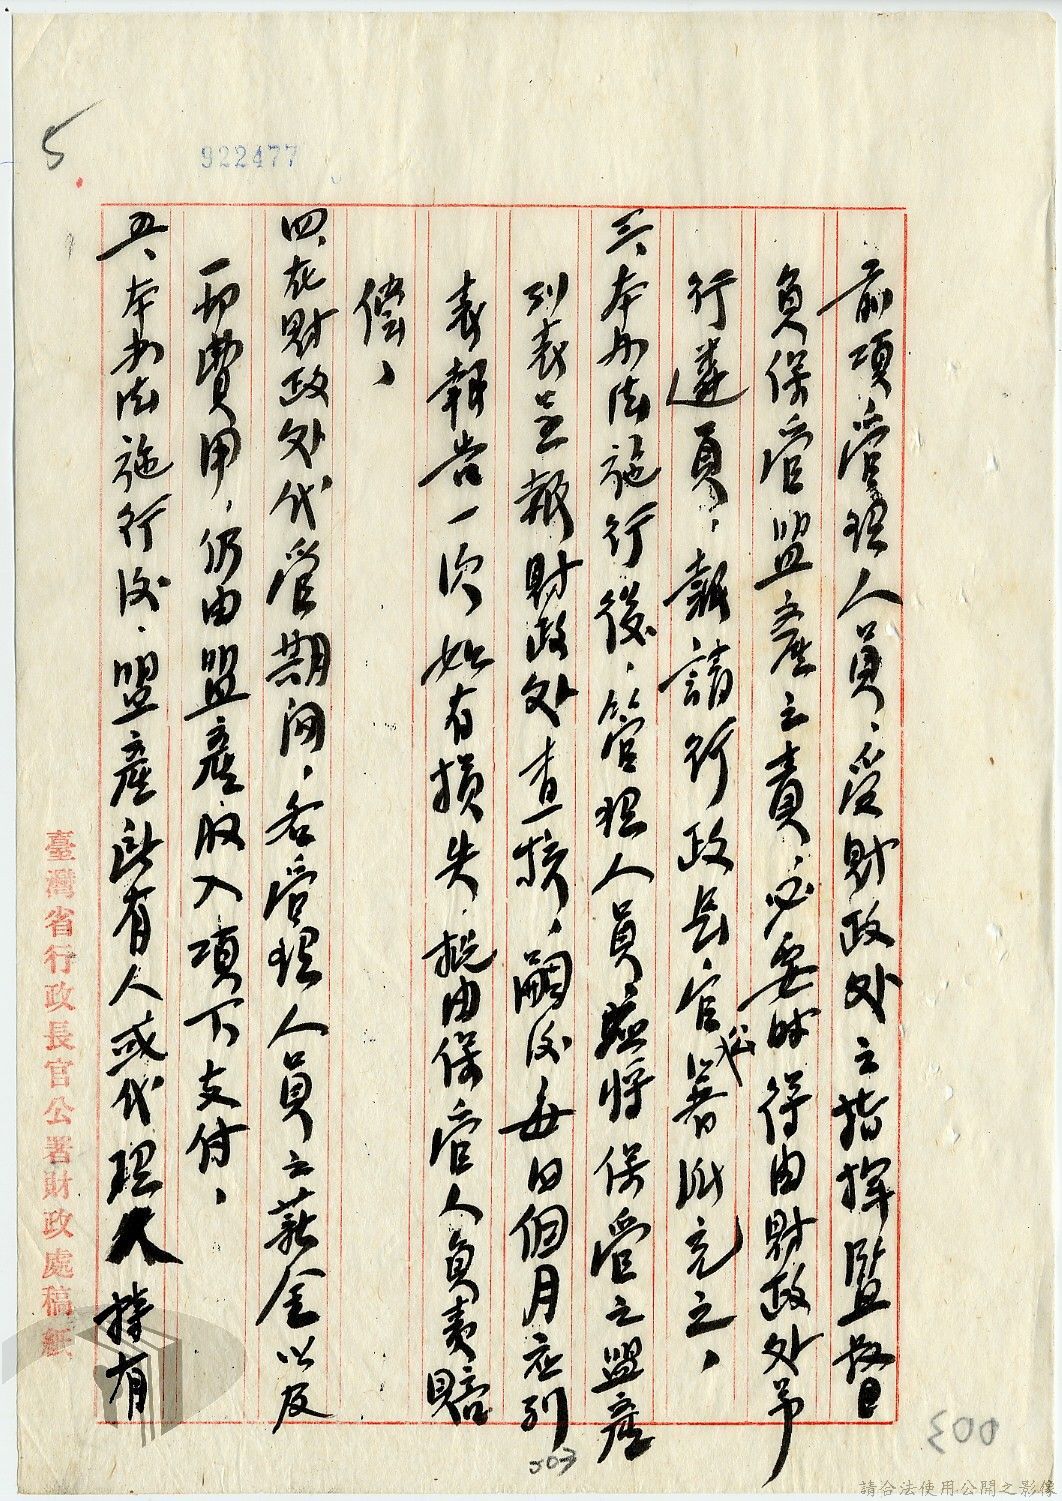 5
922477
前項管理人員、受財政处之指揮監督
負保管盟產之責、必要時得由財政处予
行遴員、報請行政長官公署派充之、
三、本办法施行後、管理人員應將保管之盟產
列表呈報財政处查核、嗣後每個月应列
表報告一次如有損失、概由保管人員責賠
償、
四、在財政处代管期间、各管理人員之薪金以及
一切費用、仍由盟產收入項下支付、
五、本办法施行後、盟產所有人或代理人持有
臺灣省行政長官公署財政處稿紙
003
003
請合法使用公開之影像